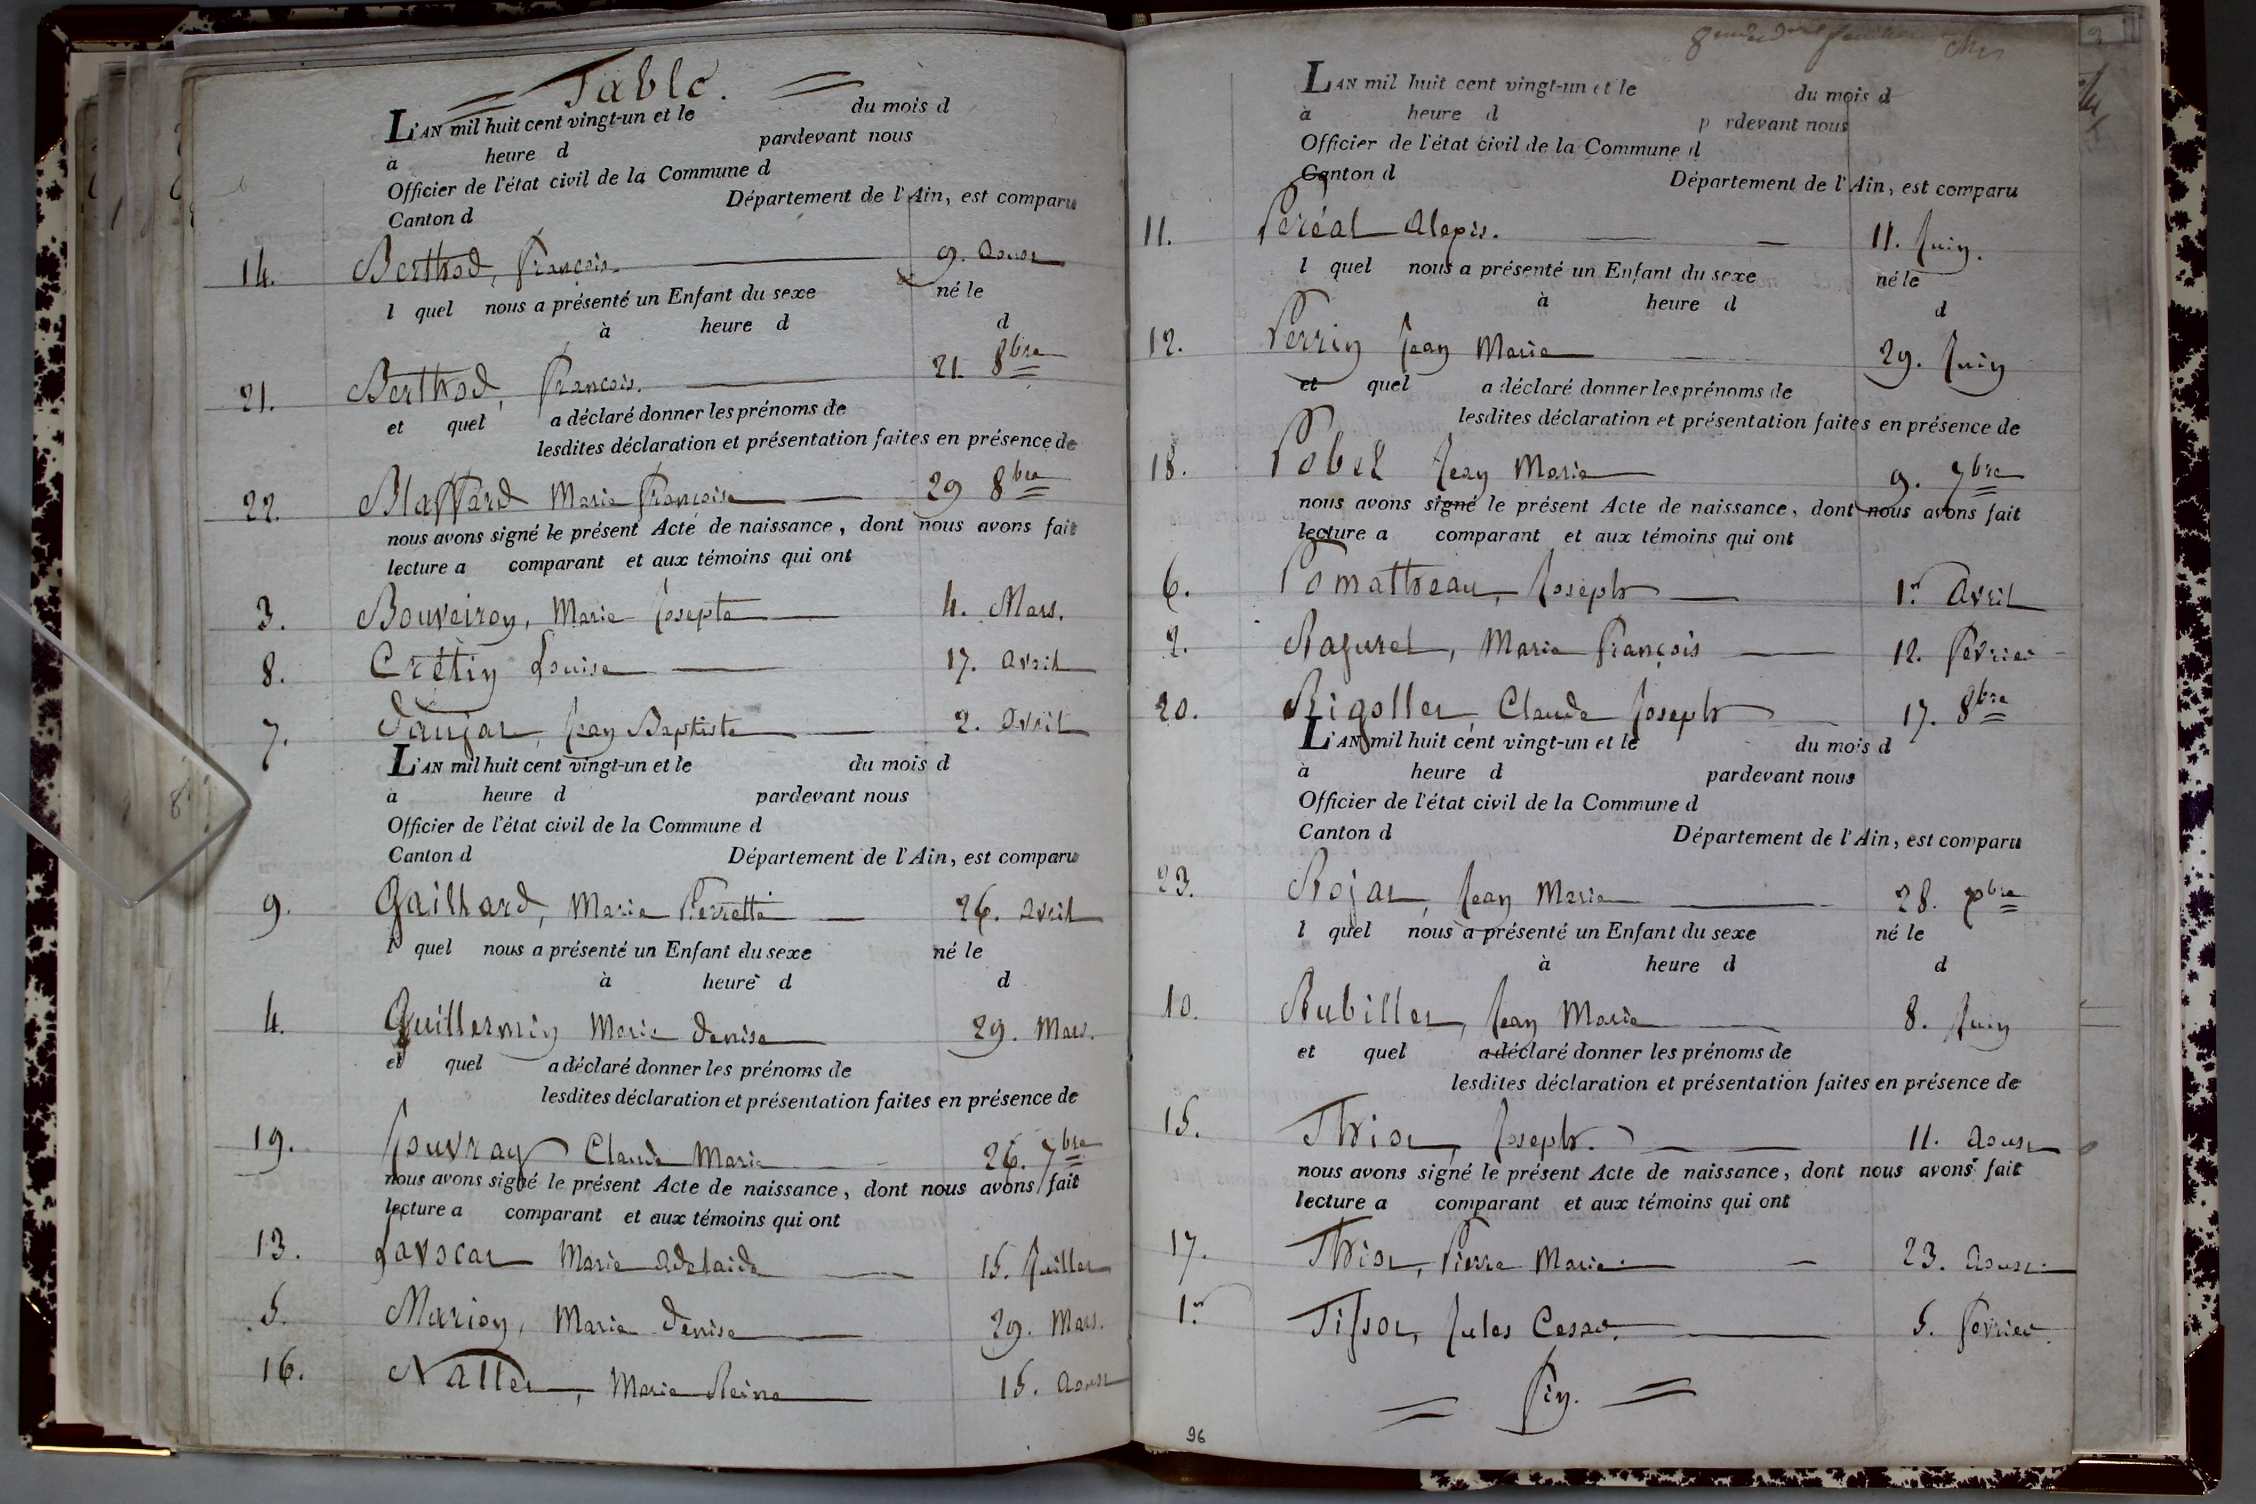 Table.
L'AN mil huit cent vingt-un et le du mois d
à heure d pardevant nous
Officier de l'état civil de la Commune d
Canton d Département de l'Ain, est comparu
14. Berthod, François. 9. Aoust
l quel nous a présenté un Enfant du sexe né le
à heure d d
21. Berthod, François. 21. 8bre
et quel a déclaré donner les prénoms de
lesdites déclaration et présentation faites en présence de
22. Blaffard Marie Françoise 29 8bre
nous avons signé le présent Acte de naissance, dont nous avons fait
lecture a comparant et aux témoins qui ont
3. Bouveiron, Marie Josepte 4. Mars.
8. Crétin Louise 17. Avril
7. Jean Baptiste 2. Avril
L'AN mil huit cent vingt-un et le du mois d
à heure d pardevant nous
Officier de l'état civil de la Commune d
Canton d Département de l'Ain, est comparu
9. Gaillard, Marie Perrette 26. Avril
l quel nous a présenté un Enfant du sexe né le
à heure d d
4. Guillermin Marie Denise 29. Mars.
et quel a déclaré donner les prénoms de
lesdites déclaration et présentation faites en présence de
19. Jouvray Claude Marie 26. 7bre
nous avons signé le présent Acte de naissance, dont nous avons fait
lecture a comparant et aux témoins qui ont
13. Lavocat Marie Adelaide 15. Juillet
5. Marion, Marie Denise 29. Mars.
16. Nallet, Marie Reine 15. Aoust
L'AN mil huit cent vingt-un et le du mois d
à heure d p rdevant nous
Officier de l'état civil de la Commune d
Canton d Département de l'Ain, est comparu
11. Peréal Alexis. 11. Juin.
l quel nous a présenté un Enfant du sexe né le
à heure d d
12. Perrin Jean Marie 29. Juin
et quel a déclaré donner les prénoms de
lesdites déclaration et présentation faites en présence de
18. Pobel Jean Marie 9. 7bre
nous avons signé le présent Acte de naissance, dont nous avons fait
lecture a comparant et aux témoins qui ont
6. Pomatheau, Joseph 1er Avril
2. Raguret, Marie François 12. Fevrier
20. Rigollet, Claude Joseph 17. 8bre
L'AN mil huit cent vingt-un et le du mois d
à heure d pardevant nous
Officier de l'état civil de la Commune d
Canton d Département de l'Ain, est comparu
23. Rojat, Jean Marie 28. xbre
l quel nous a présenté un Enfant du sexe né le
à heure d d
10. Rubillet, Jean Marie 8. Juin
et quel a déclaré donner les prénoms de
lesdites déclaration et présentation faites en présence de
15. Thiot, Joseph. 11. Aoust
nous avons signé le présent Acte de naissance, dont nous avons fait
lecture a comparant et aux témoins qui ont
17. Thiot, Pierre Marie 23. Aoust
1er Tissot, Jules Cesar. 5. Fevrier.
Fin.
96